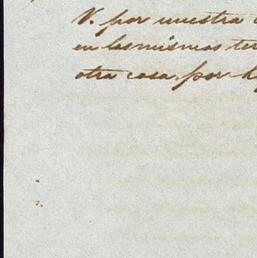 V. por nuestra
en las mismos ter
otra cosa, por